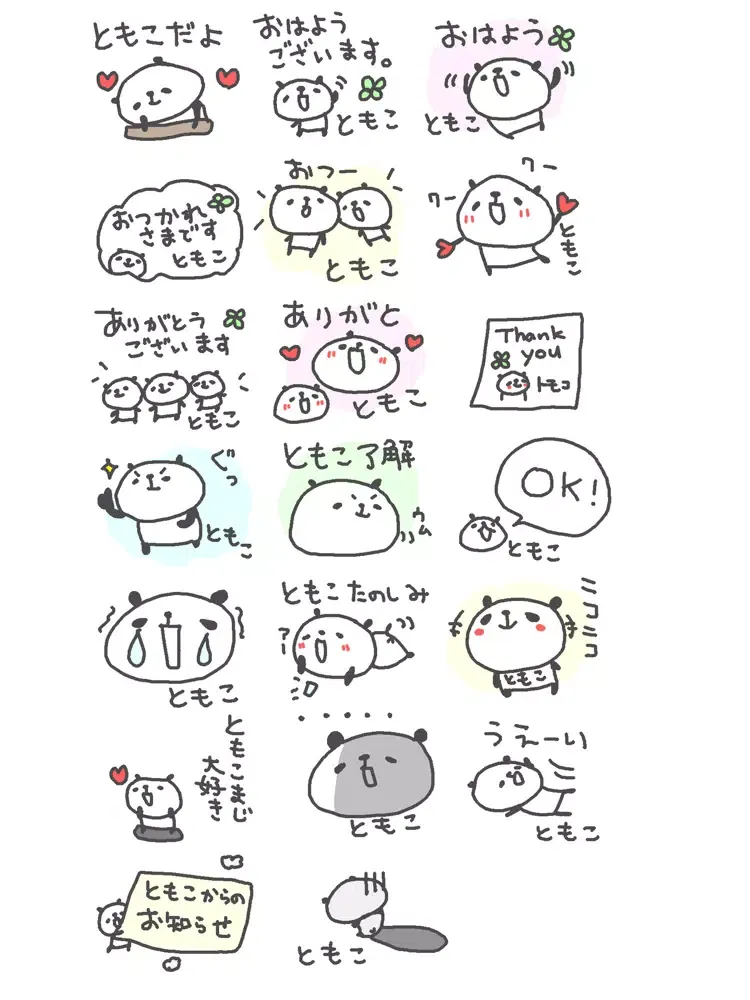 ともこだよ
おはよう
ございます。
ともこ
おはよう
ともこ
おつかれ
さまです
ともこ
おつー
ともこ
ワー
ワー
ともこ
ありがとう
ございます
ともこ
ありがと
ともこ
Thank
you
トモコ
ぐっ
ともこ
ともこ了解
ウム
OK!
ともこ
ともこ
ともこたのしみ
ニコニコ
ともこ
ともこまじ
大好き
・・・・・
ともこ
うえーい
ともこ
ともこからの
お知らせ
ともこ